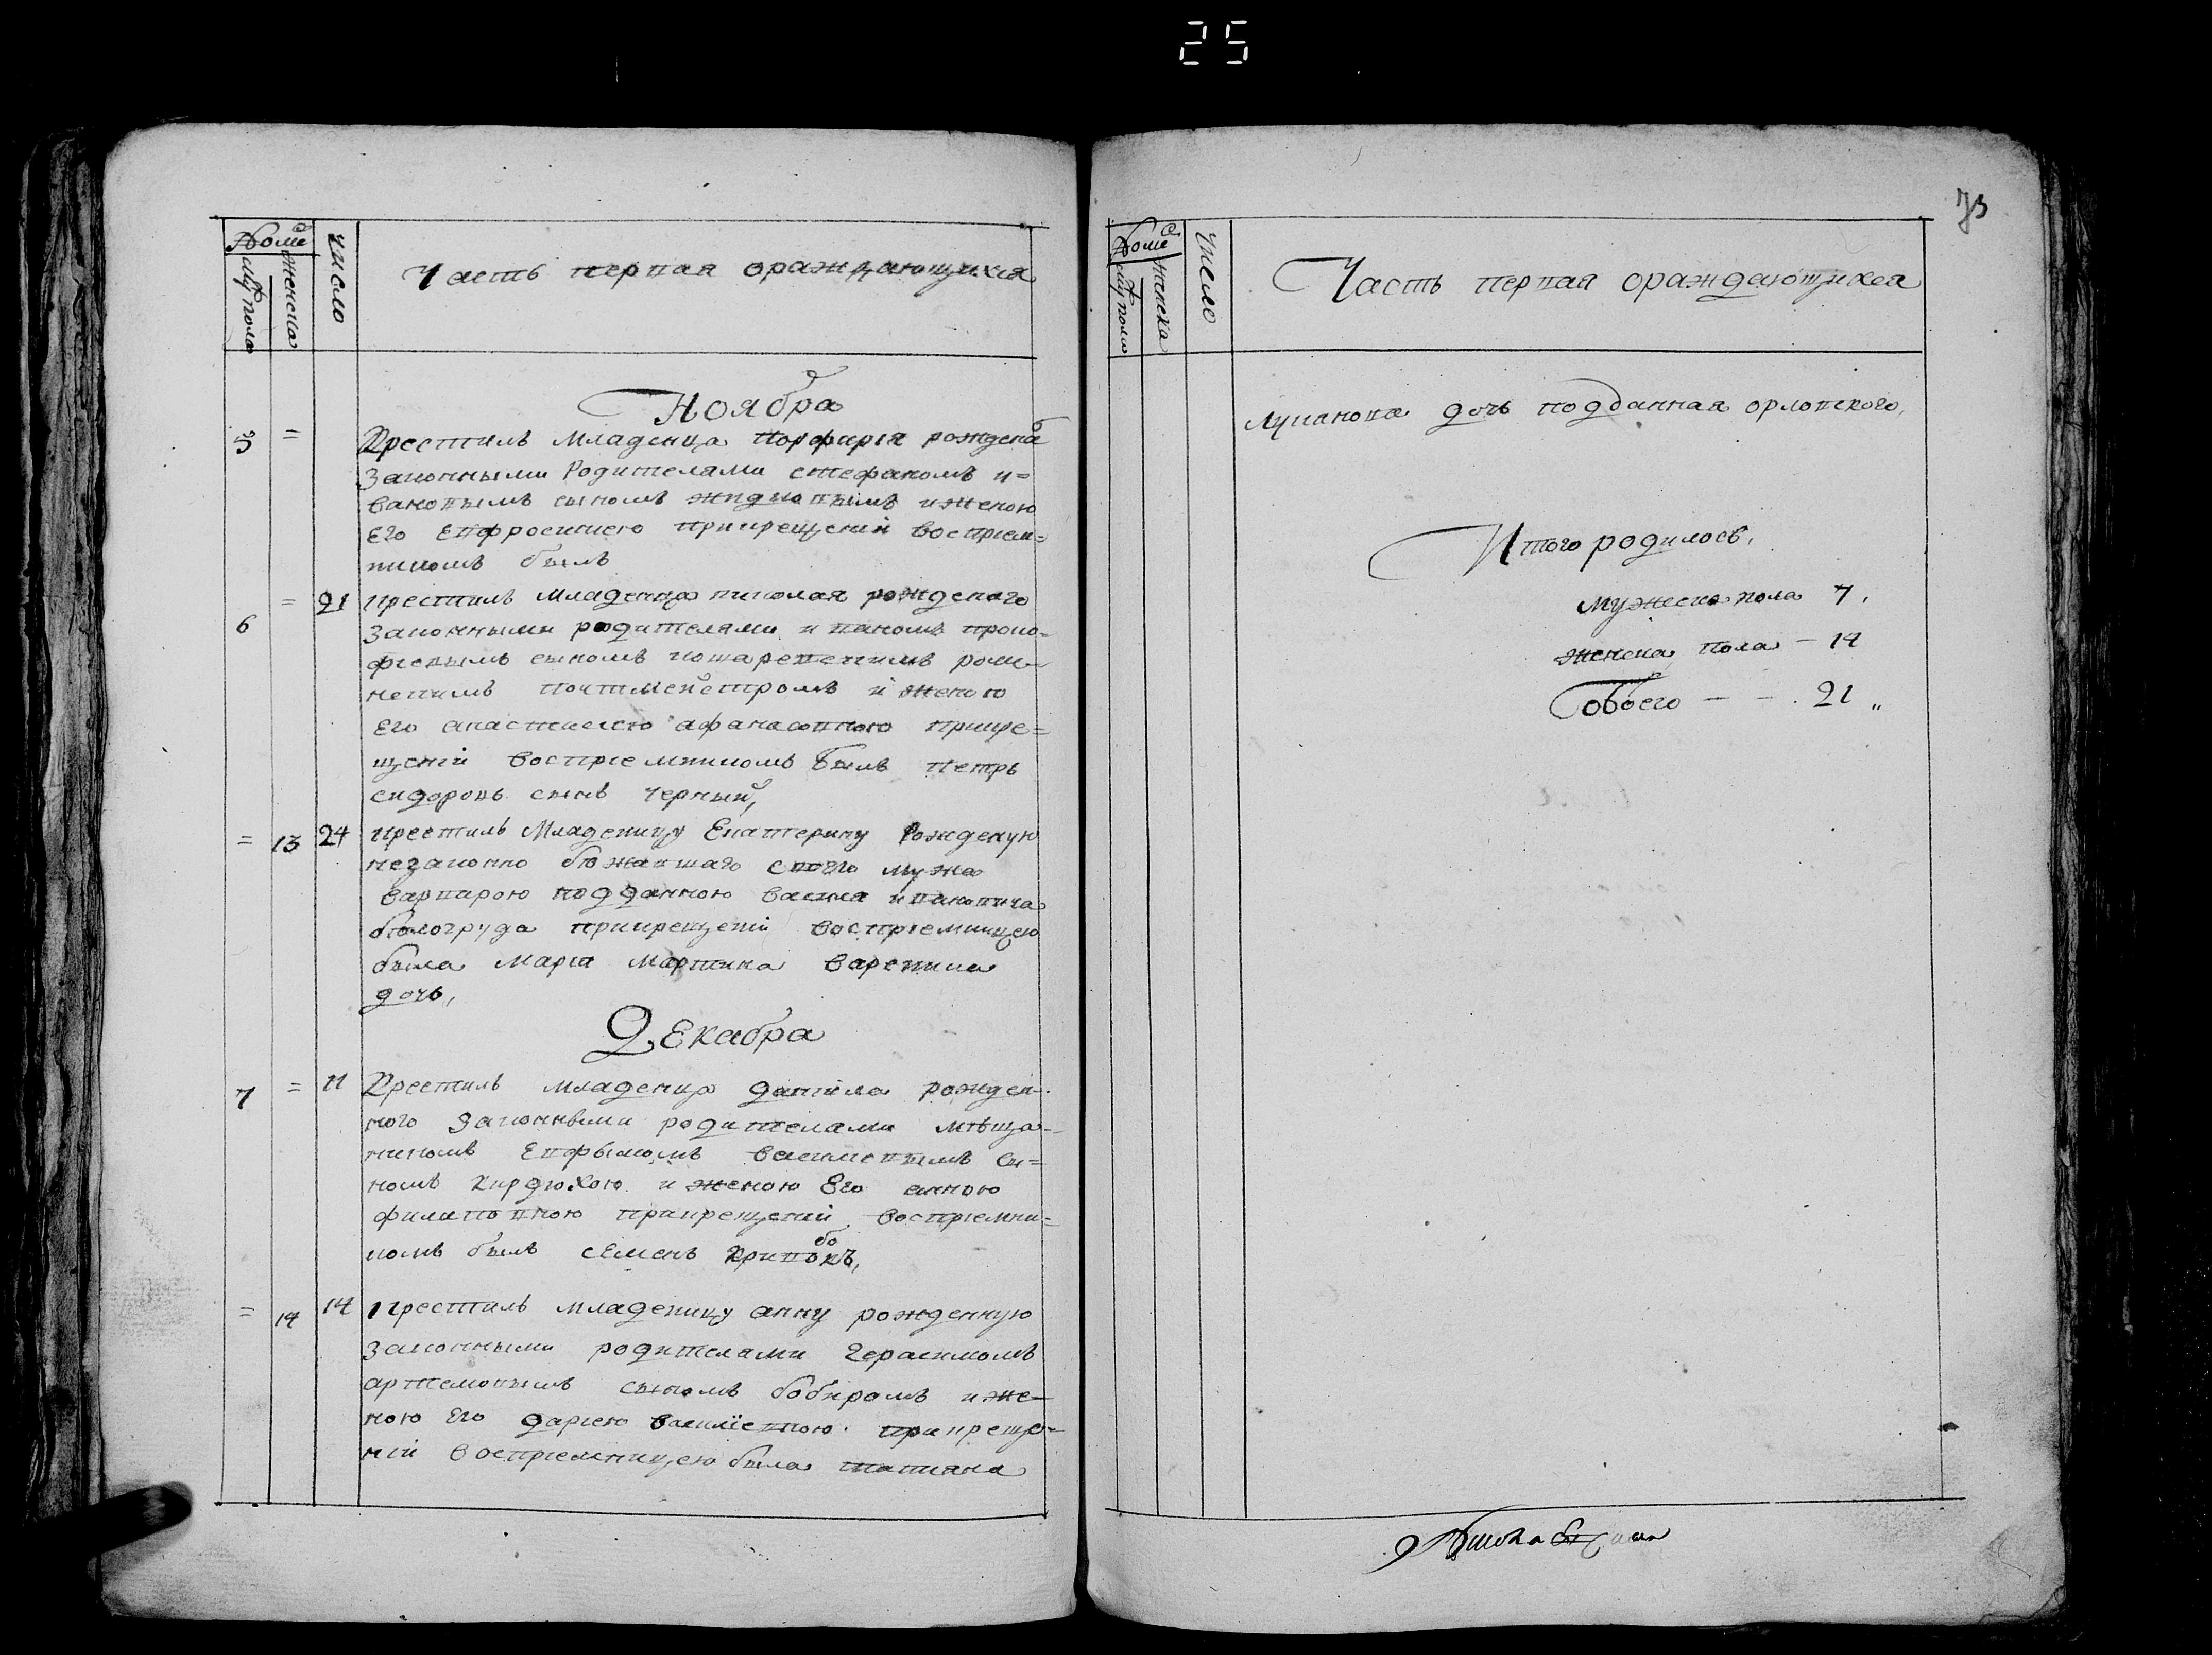 25
73
число
Часть первая ораждающихся
Ноября
5 = Крестилъ младенца порфирія рождена
законными Родителями стефаномъ и=
вановымъ сыномъ жидковымъ и женою
Его Евфросиниею прикрещеніи восприем=
никомъ былъ
6 = 21 крестилъ младенца николая рожденаго
законными родителями иваномъ проко=
фиевымъ сыномъ
почтмейстромъ и женою
Его анастасиею афанасовною прикре=
щеніи восприемникомъ былъ петръ
сидоровъ сынъ черный,
= 13 24 крестилъ Младеницу Екатерину Рожденую
незаконно бѣжавшаго своего мужа
варварою подданною васила ивановича
бѣлогруда прикрещеніи восприемницею
была маріа мартина вареника
дочь,
Декабра
7 = 11 Крестилъ младенца даніила рожден-
ного Законными родителами мѣща-
ниномъ Евфымомъ василиевымъ сы=
номъ кирдюхою и женою Его анною
филиповною прикрещеніи восприемни=
комъ былъ семенъ
= 14 14 крестилъ младеницу анну рожденную
законными родителами герасимомъ
артемовымъ сыномъ бобиромъ и же-
ною Его дариею василиевною прикреще-
ніи восприемницею была татиана
число
Часть первая ораждающихся
Луианова дочь подданная орловского,
Итого родилось,
мужеска пола 7,
женска пола – 14
обоего – – 21 „